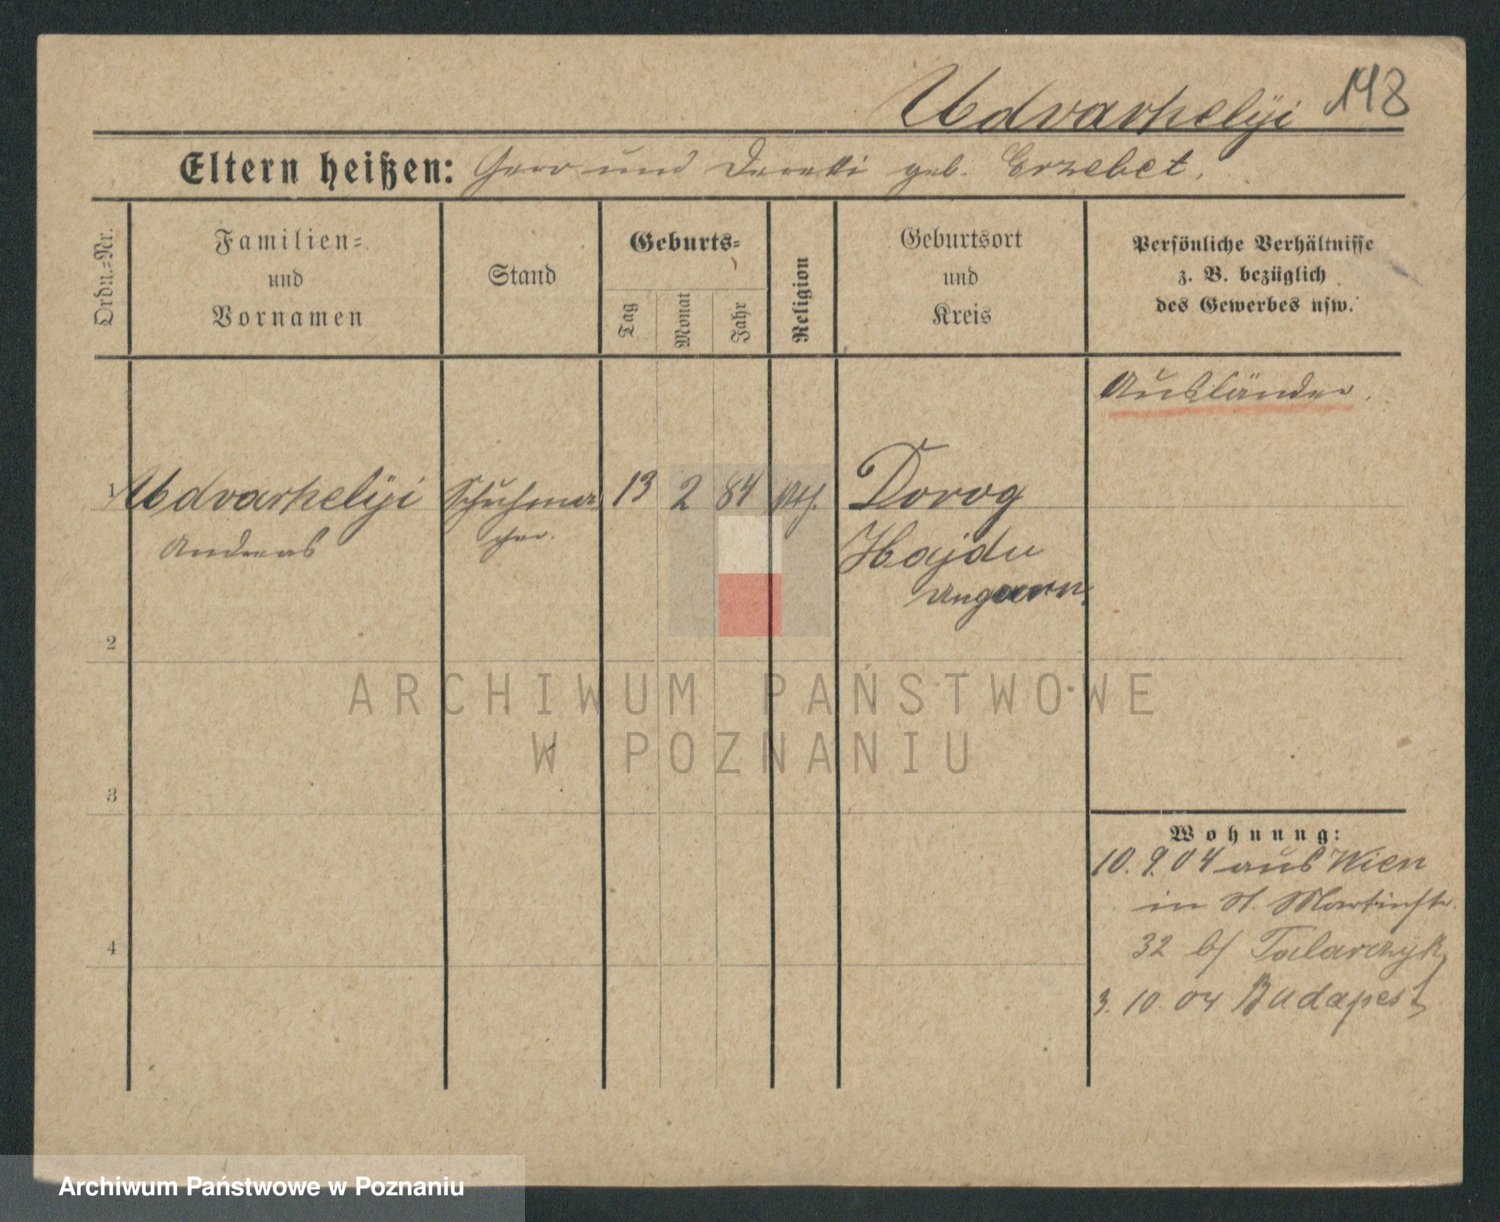 Udvarhelÿi 148
Eltern heißen: und geb. Erzebet.
Ordn.-Nr.
Familien-
und
Vornamen
Stand
Geburts-
Tag
Monat
Jahr
Religion
Geburtsort
und
Kreis
Persönliche Verhältnisse
z. B. bezüglich
des Gewerbes usw.
Ausländer.
1 Udvarhelÿi Schuhma 13 2 84 Dorog
Andreas cher. Hajdu
Ungarn
2
3
4
Wohnung:
10. 9. 04 aus Wien
in St. Martinstr.
32 b/ Talarczyk
3. 10. 04 Budapest
ARCHIWUM PAŃSTWOWE
W POZNANIU
Archiwum Państwowe w Poznaniu